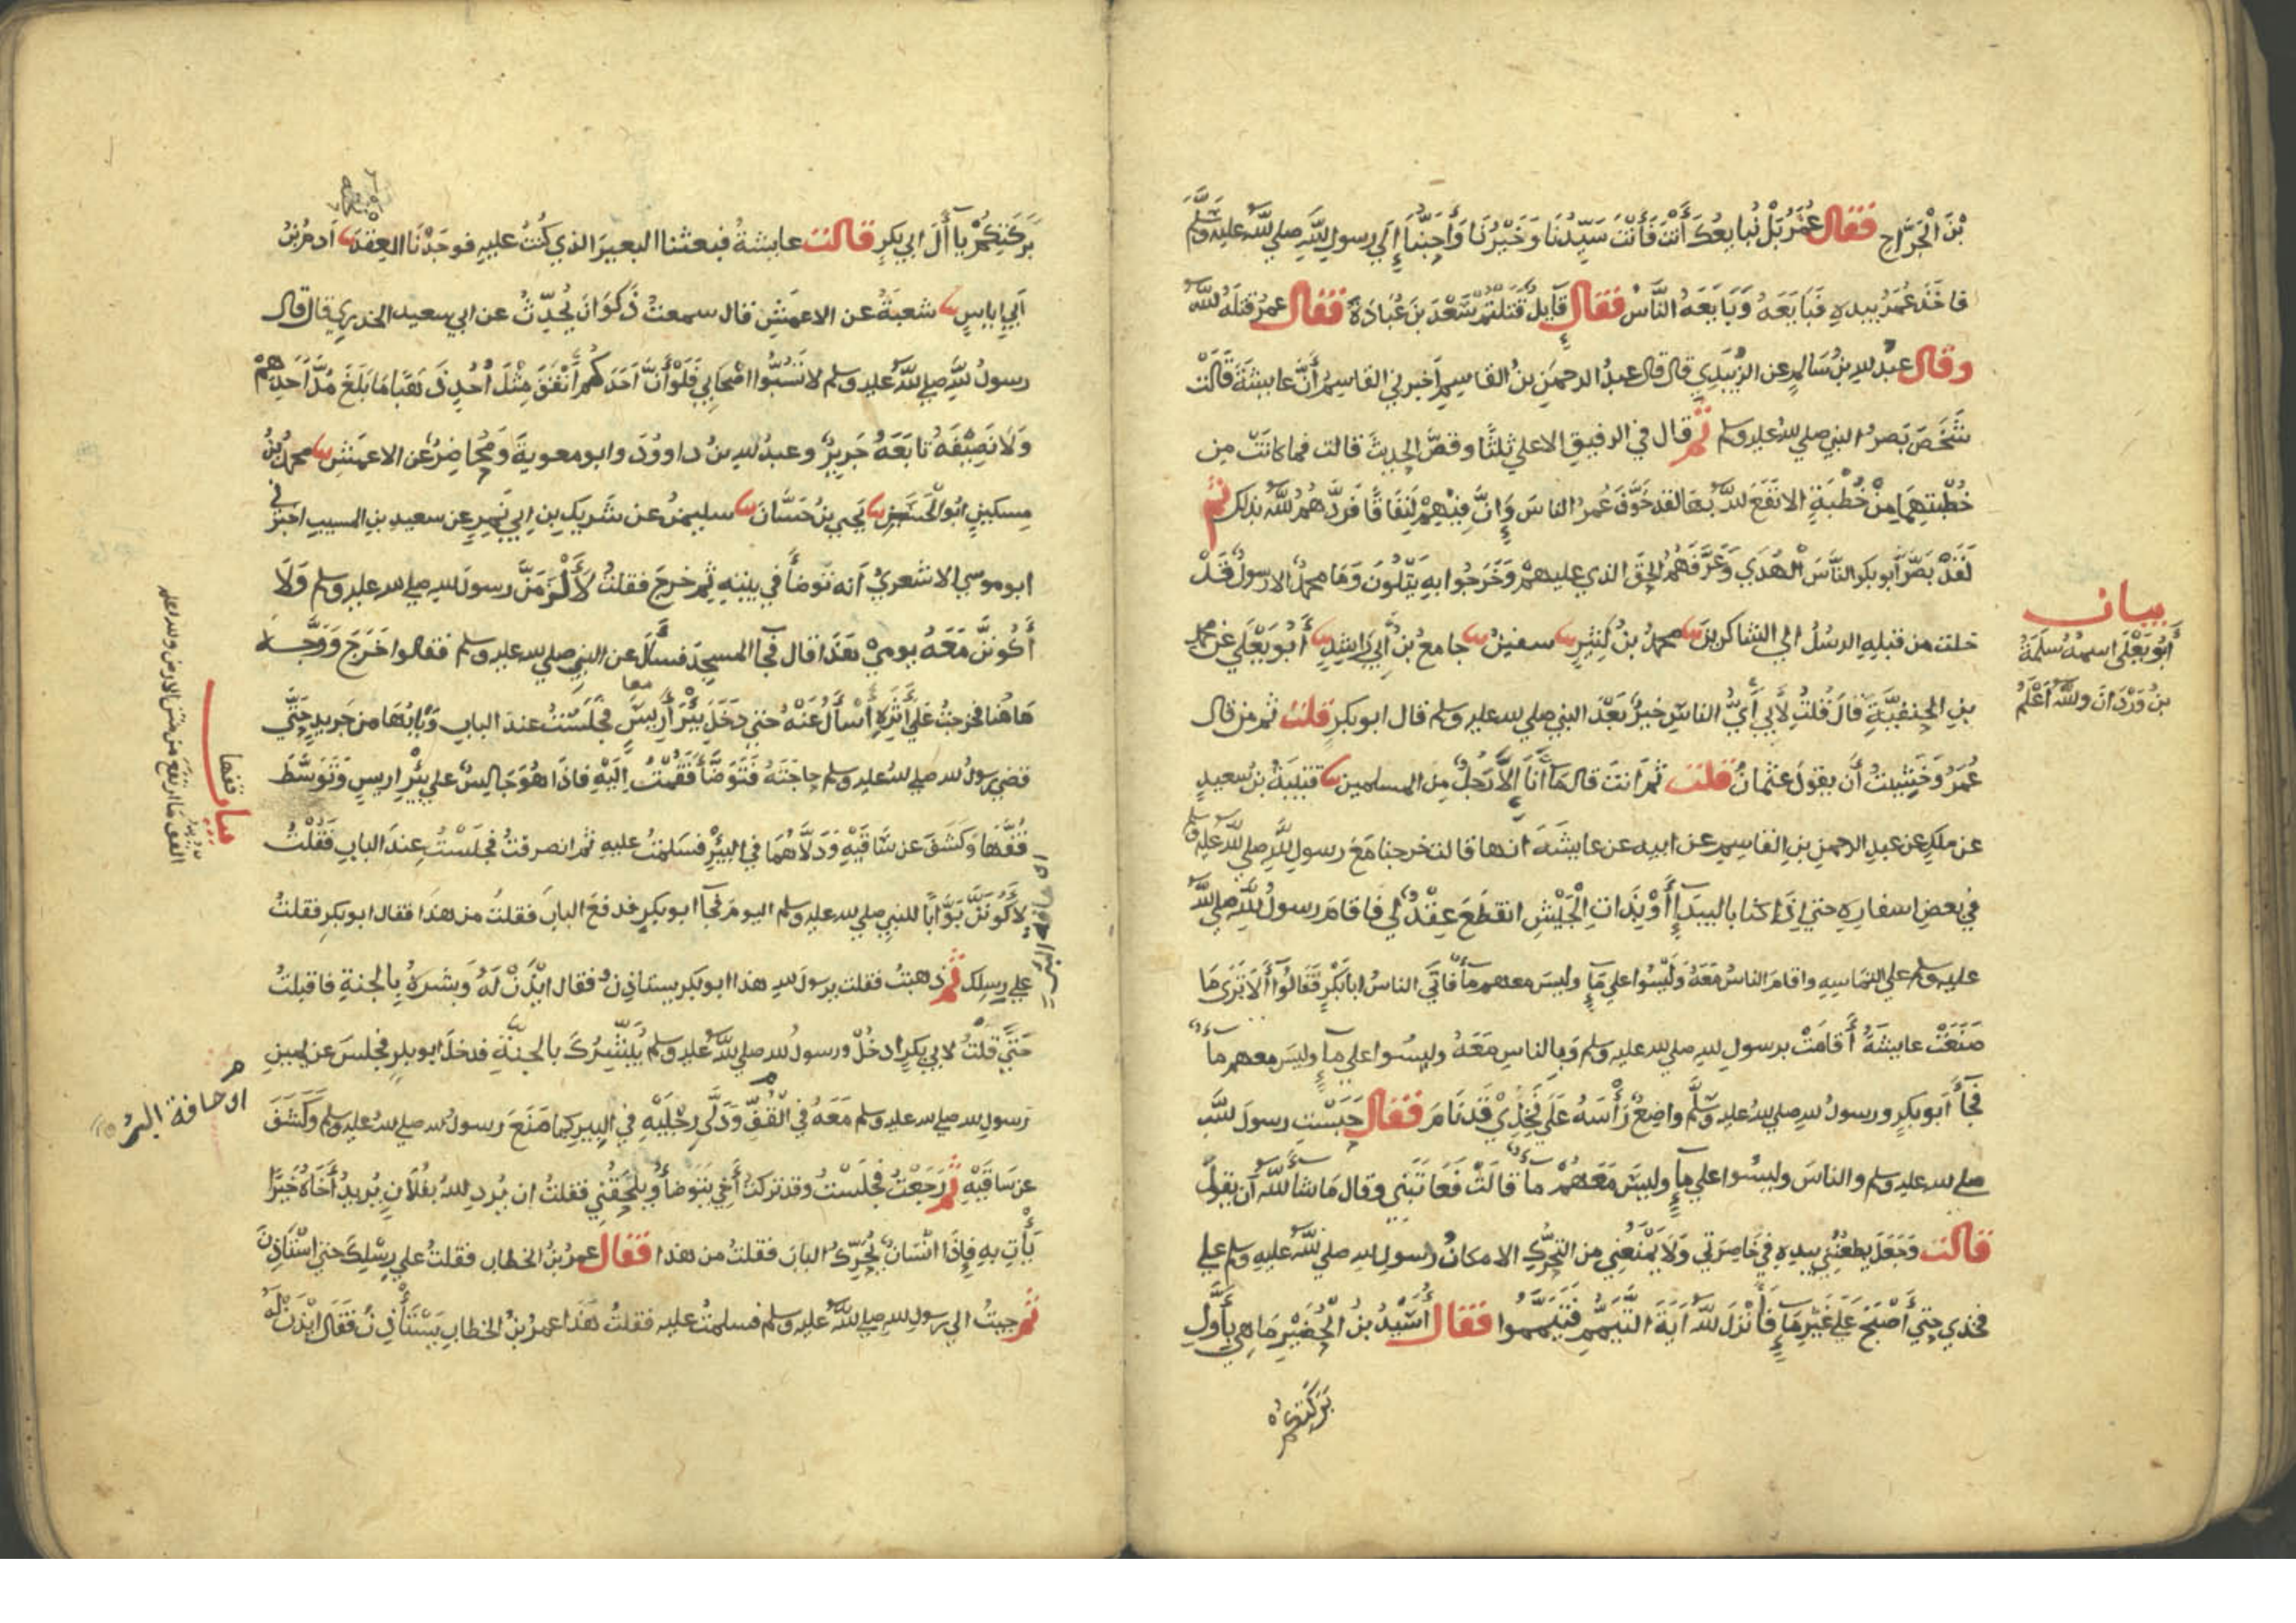 بْنَ الْجَرَّاحِ فَقَالَ عُمَرُ بَلْ نُبَايِعُكَ أَنْتَ فَأَنْتَ سَيِّدُنَا وَخَيْرُنَا وَأَحَبُّنَا إِلَى رسولِ اللهِ صلى الله عليه وسلم
فاخَذَ عُمَرُ بيدهِ فَبَايَعَهُ وَبَايَعَهُ النَّاسُ فَقَالَ قَايِلٌ قَتَلْتُمْ سَعْدَ بنَ عُبَادَةَ فَقَالَ عمرُ قتَلَهُ الله
وقال عبدُ اللهِ بنُ سَالِمٍ عن الزُّبَيْدِي قال قال عبدُ الرحمنِ بنُ القاسِمِ أخبرني القاسِمُ أنَّ عايشةَ قَالَتْ
شَخَصَ بَصَرُ النبي صلى الله عليه وسلم ثم قال في الرفيقِ الاعلي ثلثًا وقصَّ الحديثَ قالت فما كانَتْ مِن
خُطْبَتِهِمَا مِنْ خُطْبَةٍ الا نَفَعَ اللهُ بهَا لقد خَوَّفَ عُمرُ الناسَ وَإِنَّ فِيْهِمْ لَنِفَاقًا فَرَدَّهُمُ اللهُ بذلك ثُمَّ
لَقَدْ بَصَّرَ أبو بكرٍ النَّاسَ الْهُدَي وَعَرَّفَهُمُ الحقَّ الذي عليهمْ وَخَرَجُوا بهِ يَتْلُونَ وَمَا محمدٌ الا رسولٌ قَدْ
خلت من قبلِهِ الرسُلُ الي الشاكرينَ محمدُ بنُ كثيرٍ سفينُ جامعُ بنُ أَبي رَاشِدٍ أَبُو يَعْلَي عَنْ محمدِ
بنِ الحنفيَّةِ قَالَ قُلتُ لأَبي أَيُّ الناسِ خيرٌ بَعْدَ النبي صلى الله عليه وسلم قال ابو بكرٍ قلتُ ثم من قال
عُمَرُ وَخَشِيتُ أَن يقولَ عثمانُ قلتُ ثمَّ أنتَ قال مَا أَنَا إِلاَّ رَجُلٌ مِنَ المسلمين قتيبةُ بن سعيدٍ
عن ملكٍ عن عبدِ الرحمنِ بنِ القاسِمِ عن ابيه عن عايشَةَ انها قالت خرجنا مَعَ رسولِ اللهِ صلى الله عليه وسلم
في بعضِ اسفارِهِ حتي اِذَا كنا بالبيدَاءِ أَوْ بِذَاتِ الْجَيْشِ انقطَعَ عِقْدٌ لي فاقامَ رسولُ اللهِ صلى الله
عليه وسلم علي التماسِهِ واقامَ الناسُ مَعَهُ وَلَيْسُوا علي مَاءٍ وليسَ معهم ماءٌ فَأَتَي الناسُ ابا بَكْرٍ فَقَالُوا أَلاَ تَرَى مَا
صَنَعَتْ عايشةُ أَقَامَتْ برسولِ اللهِ صلى الله عليه وسلم وَبِالناسِ مَعَهُ وليسُوا علي ماءٍ وليسَ معهم ماءٌ
فجآءَ أبو بكرٍ ورسولُ اللهِ صلى الله عليه وسلم واضِعٌ رَأْسَهُ عَلَي فَخِذِيْ قَدْ نَامَ فَقَالَ حَبَسْتِ رسولَ الله
صلى الله عليه وسلم والناسَ وليسُوا علي ماءٍ وليسَ مَعَهُمْ ماءٌ قالَتْ فَعَاتَبَنِي وقال مَا شَاءَ الله أن يقولَ
قالت وَجَعَلَ يطعُنُنِي بيدهِ في خَاصِرَتي وَلاَ يَمْنَعُنِي مِن التحَرُّكِ الا مكانُ رسولِ الله صلى الله عليه وسلم علي
فخذي حتي أَصْبَحَ عَلَي غَيْرِ مَاءٍ فَأَنْزَلَ اللهُ آيَةَ التَّيَمُّمِ فَتَيَمَّمُوا فَقَالَ أُسَيْدُ بنُ الْحُضَيْرِ مَا هِيَ بِأَوَّلِ
بَرَكَتِكُمْ
بيان
أَبُو يَعْلَى اسمُهُ سَلَمَةُ
بنُ وَرْدَانَ والله أَعْلَمُ
بَرَكَتِكُمْ يَا آلَ ابي بكرٍ قالت عايشةُ فبعثنا البعيرَ الذي كُنْتُ عليهِ فوجَدْنَا العِقْدَ ادمُ بنُ
أَبي اياسٍ شعبَةُ عن الاعمَشِ قال سمعتُ ذَكْوَانَ يُحَدِّثُ عن ابي سعيد الخدري قال قال
رسولُ اللهِ صلى الله عليه وسلم لا تَسُبُّوا اصْحَابِي فَلَوْ أَنَّ أَحَدَكُمْ أَنْفَقَ مِثْلَ أُحُدٍ ذَهَبًا مَا بَلَغَ مُدَّ أَحَدِهِمْ
وَلاَ نَصِيْفَهُ تابَعَهُ جَرِيرٌ وعبدُ اللهِ بنُ داووُدَ وابو معويةَ وَمُحَاضِرٌ عن الاعمَشِ محمدُ بنُ
مسكينٍ ابُو الْحَسَنِ يَحيي بنُ حَسَّانَ سليمنُ عن شَريكِ بنِ ابي نَمِرٍ عن سعيدِ بنِ المسيبِ اخبرَني
ابو موسي الاشعريُّ أنه توضأَ في بيتِهِ ثم خرجَ فقلتُ لأَلْزَمَنَّ رسولَ الله صلى الله عليه وسلم وَلَأَ
أَكُونَنَّ مَعَهُ يومِيْ هَذَا قال فجآءَ المسجِدَ فسألَ عن النبيِّ صلى الله عليه وسلم فقالوا خَرَجَ وَوَجَّهَ
هَاهُنَا فخرجتُ عَلَي أَثَرِهِ أَسْأَلُ عَنْهُ حتي دَخَلَ بِئْرَ أَرِيسٍ فجَلَسْتُ عندَ البابِ وَبَابُهَا من جَرِيدٍ حَتَّي
قضي رسولُ الله صلى الله عليه وسلم حاجَتَهُ فَتَوَضَّأَ فَقُمْتُ اِلَيْهِ فاذَا هُوَ جَالِسٌ علي بِئْرِ اريسٍ وَتَوَسَّطَ
قُفَّهَا وَكَشَفَ عن سَاقَيْهِ وَدَلاَّهُمَا في البِئْرِ فسَلمْتُ عليهِ ثم انصرفتُ فجَلَسْتُ عِندَ البابِ فَقُلْتُ
لأَكُونَنَّ بَوَّابًا للنبي صلى الله عليه وسلم اليومَ فجآءَ ابو بكرٍ فدفعَ البابَ فقلتُ من هذا فقال ابو بكرٍ فقلتُ
علي رِسلِك ثم ذهبتُ فقلت يرسولَ الله هذا ابو بكرٍ يستاذِنُ فقال ائْذَنْ لَهُ وَبَشِّرهُ بِالجنةِ فاقبلتُ
حَتَّي قلْتُ لابي بكرٍ ادخُلْ ورسولُ الله صلى الله عليه وسلم يُبَشِّرُكَ بالجنَّةِ فدخلَ ابو بكرٍ فجلسَ عن يمينِ
رسولِ الله صلى الله عليه وسلم مَعَهُ في الْقُفِّ وَدَلَّي رِجْلَيْهِ في البِيرِ كما صَنَعَ رسولُ الله صلى الله عليه وسلم وَكَشَفَ
عن سَاقَيْهِ ثم رَجَعْتُ فجَلَسْتُ وقد تركتُ أَخِي يتوضأُ ويلحَقُنِي فقلتُ ان يُرِدِ اللهُ بفُلاَنٍ يُريدُ أَخَاهُ خَيْرًا
يَأْتِ بهِ فَإِذَا انْسَانٌ يُحَرِّكُ البابَ فقلتُ من هذا فقال عمرُ بنُ الخطابِ فقلتُ علي رِسْلِكَ حتي استَاذِنَ
ثم جيتُ الي رسولِ اللهِ صلى الله عليه وسلم فسلمتُ عليه فقلتُ هَذَا عمرُ بنُ الخطابِ يَسْتَأْذِنُ فَقَالَ ائْذَنْ لَهُ
معا
اى حافة البئر
بيان
قفها
القف ما ارتفع من متن الارض والله اعلم
اى حافة البئر